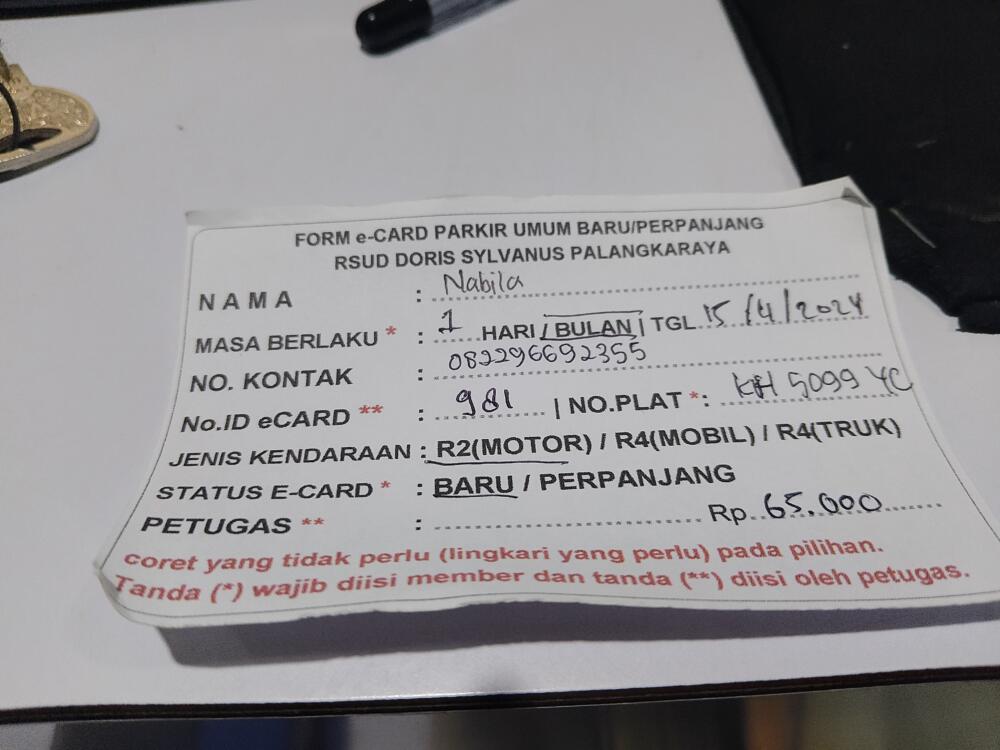 FORM e-CARD PARKIR UMUM BARU/PERPANJANG
RSUD DORIS SYLVANUS PALANGKARAYA
NAMA : Nabila
MASA BERLAKU * : 1 HARI / BULAN | TGL 15/4/2024
NO. KONTAK : 082296692355
No.ID eCARD ** : 981 | NO.PLAT *: KH 5099 YC
JENIS KENDARAAN : R2(MOTOR) / R4(MOBIL) / R4(TRUK)
STATUS E-CARD * : BARU / PERPANJANG
PETUGAS ** : Rp 65.000
coret yang tidak perlu (lingkari yang perlu) pada pilihan.
Tanda (*) wajib diisi member dan tanda (**) diisi oleh petugas.